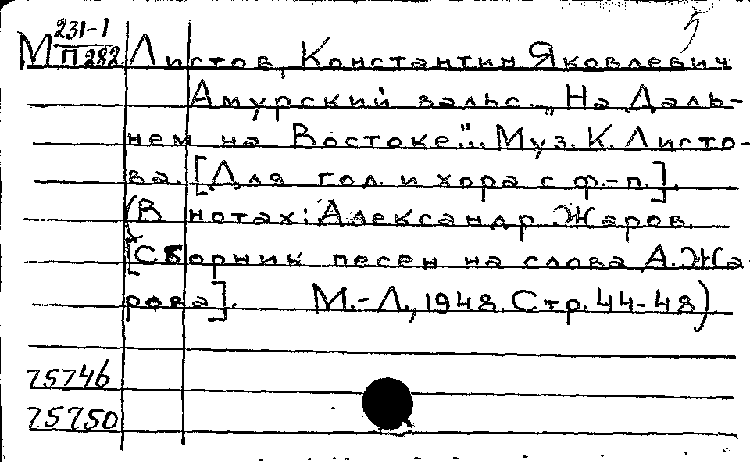 5
М 231-1/П 282 Листов, Константин Яковлевич
Амурский вальс. „На Даль-
нем на Востоке.".. Муз. К. Листо-
ва. [Для гол. и хора с ф.-п.].
(В нотах: Александр Жаров.
[Сборник песен на слова А. Жа-
рова]. М.-Л., 1948. Стр. 44-48)
75746
75750